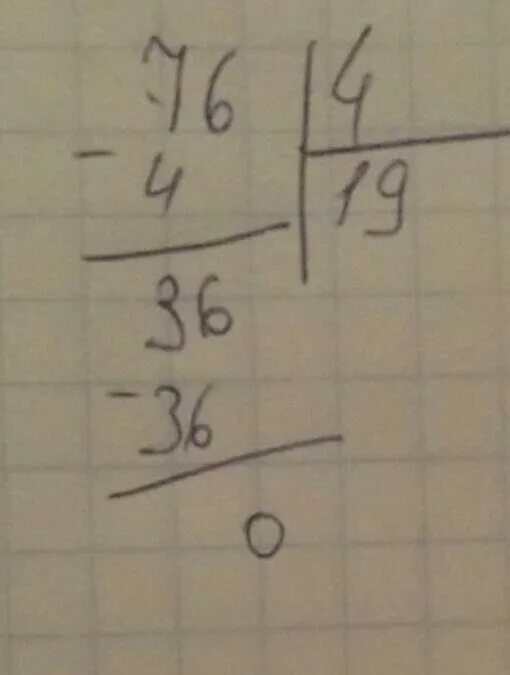 76 4
- 4 19
36
- 36
0